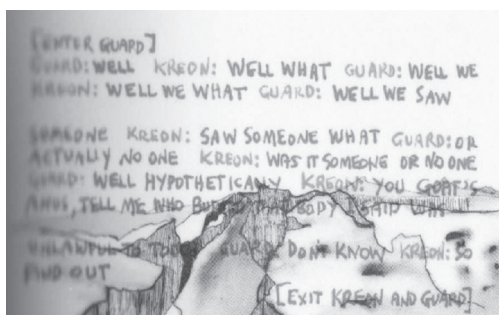 [ENTER GUARD]
GUARD: WELL KREON: WELL WHAT GUARD: WELL WE
KREON: WELL WE WHAT GUARD: WELL WE SAW
SOMEONE KREON: SAW SOMEONE WHAT GUARD: OR
ACTUALLY NO ONE KREON: WAS IT SOMEONE OR NO ONE
GUARD: WELL HYPOTHETICALLY KREON: YOU GOAT'S
ANUS, TELL ME WHO BODY I SAID WAS
UNLAWFUL TO GUARD: DON'T KNOW KREON: SO
FIND OUT
[EXIT KREON AND GUARD]